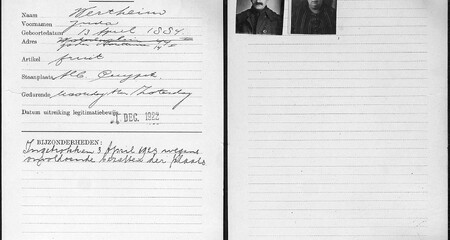 Naam Wertheim
Voornamen Juda
Geboortedatum 13 April 1884
Adres
Artikel fruit
Staanplaats Alb Cuypst
Gedurende Maandag t/m Zaterdag
Datum uitreiking legitimatiebewijs DEC. 1922
BIJZONDERHEDEN:
Ingetrokken 3 April 1923 wegens
onvoldoende bezetten der plaats